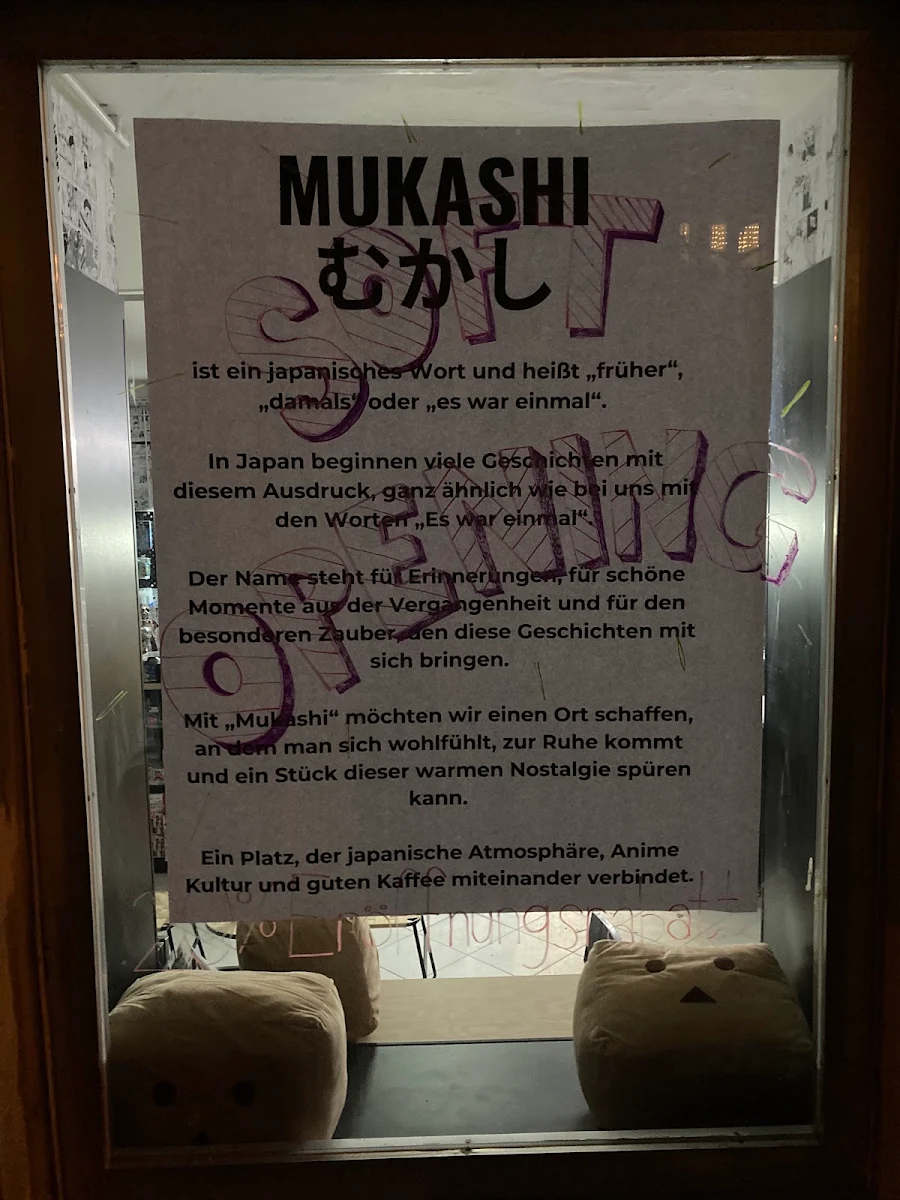 MUKASHI
むかし
SOFT
OPENING
ist ein japanisches Wort und heißt „früher“,
„damals“ oder „es war einmal“.
In Japan beginnen viele Geschichten mit
diesem Ausdruck, ganz ähnlich wie bei uns mit
den Worten „Es war einmal“.
Der Name steht für Erinnerungen, für schöne
Momente aus der Vergangenheit und für den
besonderen Zauber, den diese Geschichten mit
sich bringen.
Mit „Mukashi“ möchten wir einen Ort schaffen,
an dem man sich wohlfühlt, zur Ruhe kommt
und ein Stück dieser warmen Nostalgie spüren
kann.
Ein Platz, der japanische Atmosphäre, Anime
Kultur und guten Kaffee miteinander verbindet.
Eröffnungsrabatt